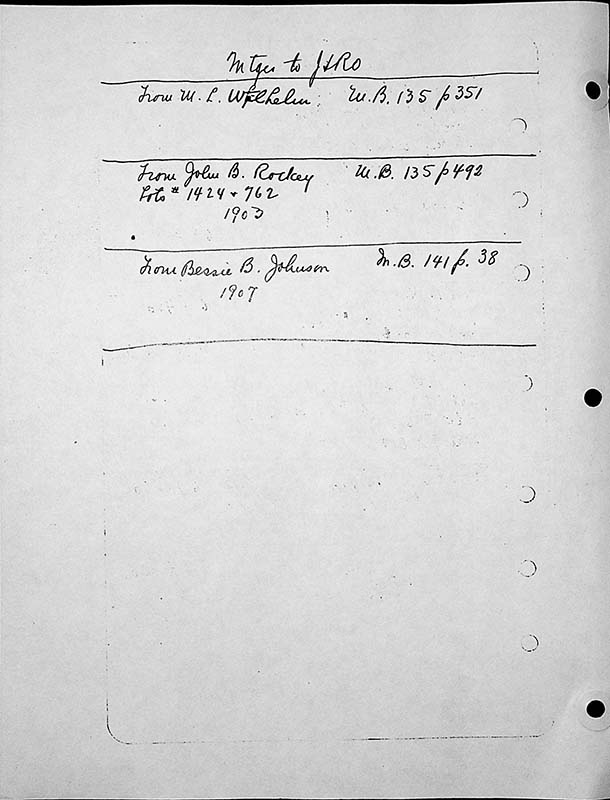 Mtges to J&RO
From M. L. Wilhelm, M.B. 135 p 351
From John B. Rockey M.B. 135 p 492
Lots # 1424 + 762
1903
From Bessie B. Johnson M.B. 141 p. 38
1907